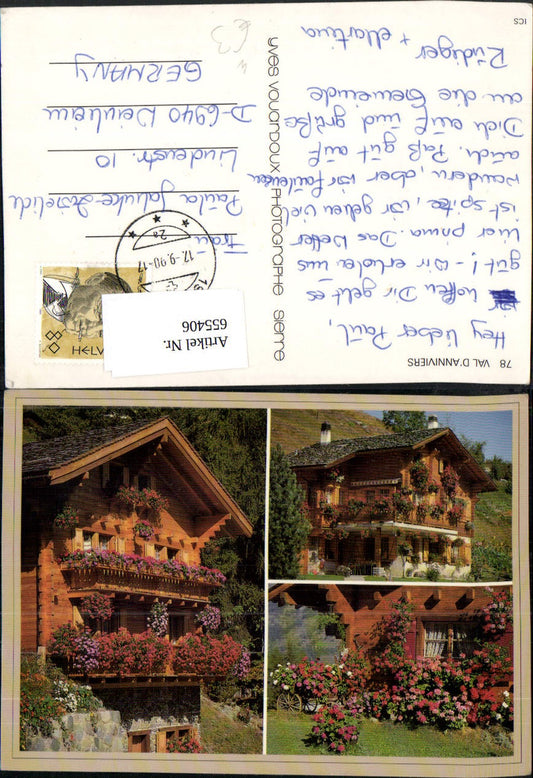 78 VAL D'ANNIVIERS
Hey lieber Paul,
wir hoffen Dir geht es
gut! - Wir erholen uns
hier prima. Das Wetter
ist spitze, wir gehen viel
wandern, aber wir faulenzen
auch. Paß gut auf
Dich auf und grüße
an die Gemeinde
Rüdiger
+ Martina
yves vouardoux PHOTOGRAPHE sierre
ICS
63
17.-9.90-17
2a
HELVETIA
Frau
Paula
Lindenstr. 10
D-6940 Weinheim
GERMANY
Artikel Nr.
655406